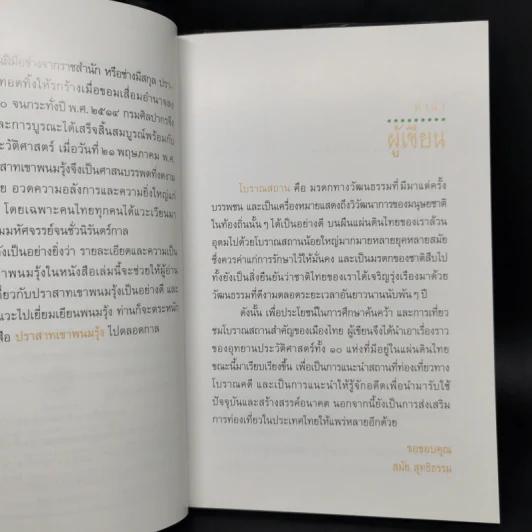 นฝีมือช่างจากราชสำนัก หรือช่างมีสกุล ปรา
ทอดทิ้งให้รกร้างเมื่อขอมเสื่อมอำนาจลง
๐ จนกระทั่งปี พ.ศ. ๒๕๑๔ กรมศิลปากรจึง
และการบูรณะได้เสร็จสิ้นสมบูรณ์พร้อมกับ
ะวัติศาสตร์ เมื่อวันที่ ๒๑ พฤษภาคม พ.ศ.
าสาทเขาพนมรุ้งจึงเป็นศาสนบรรพตที่งดงาม
ย อวดความอลังการและความยิ่งใหญ่แก่
โดยเฉพาะคนไทยทุกคนได้แวะเวียนมา
มมหัศจรรย์จนชั่วนิรันดร์กาล
ังเป็นอย่างยิ่งว่า รายละเอียดและความเป็น
าพนมรุ้งในหนังสือเล่มนี้จะช่วยให้ผู้อ่าน
กี่ยวกับปราสาทเขาพนมรุ้งเป็นอย่างดี และ
แวะไปเยี่ยมเยียนพนมรุ้ง ท่านก็จะตระหนัก
สือ ปราสาทเขาพนมรุ้ง ไปตลอดกาล
คำนำ
ผู้เขียน
โบราณสถาน คือ มรดกทางวัฒนธรรมที่มีมาแต่ครั้ง
บรรพชน และเป็นเครื่องหมายแสดงถึงวิวัฒนาการของมนุษยชาติ
ในท้องถิ่นนั้น ๆ ได้เป็นอย่างดี บนผืนแผ่นดินไทยของเราล้วน
อุดมไปด้วยโบราณสถานน้อยใหญ่มากมายหลายยุคหลายสมัย
ซึ่งควรค่าแก่การรักษาไว้ให้มั่นคง และเป็นมรดกของชาติสืบไป
ทั้งยังเป็นสิ่งยืนยันว่าชาติไทยของเราได้เจริญรุ่งเรืองมาด้วย
วัฒนธรรมที่ดีงามตลอดระยะเวลาอันยาวนานนับพัน ๆ ปี
ดังนั้น เพื่อประโยชน์ในการศึกษาค้นคว้า และการเที่ยว
ชมโบราณสถานสำคัญของเมืองไทย ผู้เขียนจึงได้นำเอาเรื่องราว
ของอุทยานประวัติศาสตร์ทั้ง ๑๐ แห่งที่มีอยู่ในแผ่นดินไทย
ขณะนี้มาเรียบเรียงขึ้น เพื่อเป็นการแนะนำสถานที่ท่องเที่ยวทาง
โบราณคดี และเป็นการแนะนำให้รู้จักอดีตเพื่อนำมารับใช้
ปัจจุบันและสร้างสรรค์อนาคต นอกจากนี้ยังเป็นการส่งเสริม
การท่องเที่ยวในประเทศไทยให้แพร่หลายอีกด้วย
ขอขอบคุณ
สมัย สุทธิธรรม